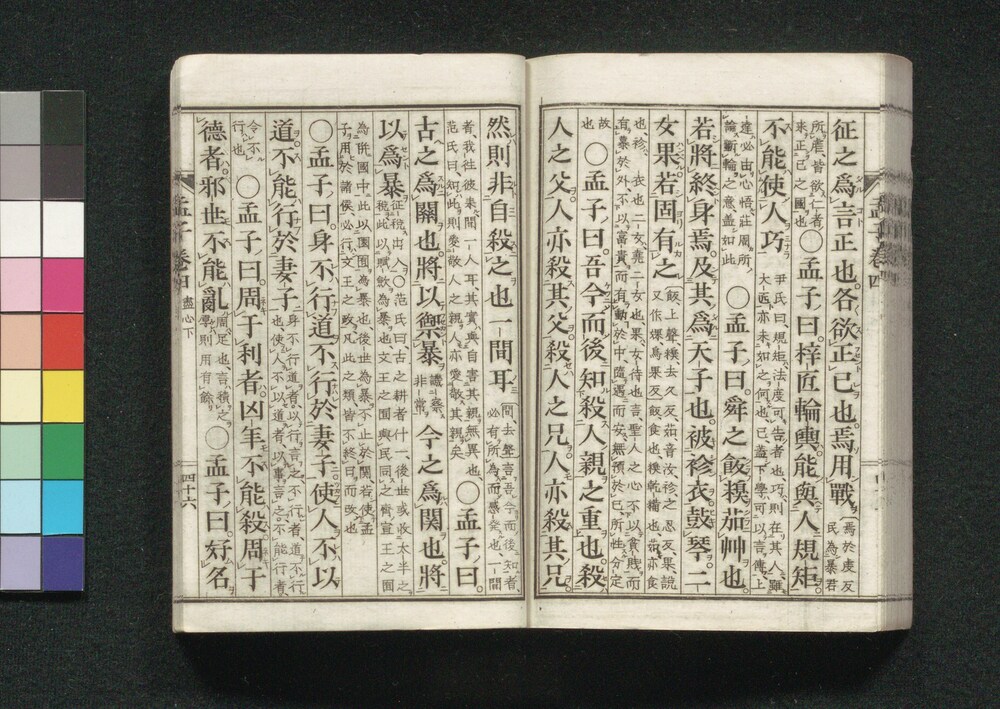 征之爲言正也各欲正己也焉用戰焉於虔反民爲暴君
所虐皆欲仁者來正己之國也○孟子曰梓匠輪輿能與人規矩
不能使人巧尹氏曰規矩法度可告者也巧則在其人雖大匠亦末如之何也已蓋下學可以言傳上
達必由心悟莊周所論斲輪之意蓋如此○孟子曰舜之飯糗茹艸也
若將終身焉及其爲天子也被袗衣鼓琴二
女果若固有之飯上聲糗去久反茹音汝袗之忍反果說文作婐烏果反飯食也糗乾糒也茹亦食
也袗衣也二女堯二女也果女侍也言聖人之心不以貧賤而有慕於外不以富貴而有動於中隨遇而安無預於己所性分定
故也○孟子曰吾今而後知殺人親之重也殺
人之父人亦殺其父殺人之兄人亦殺其兄
然則非自殺之也一間耳間去聲言吾今而後知者必有所爲而感發也一間
者我往彼來間一人耳其實與自害其親無異也范氏曰知此則愛敬人之親人亦愛敬其親矣○孟子曰
古之爲關也將以禦暴譏察非常今之爲関也將
以爲暴征稅出入○范氏曰古之耕者什一後世或收太半之稅此以賦斂爲暴也文王之囿與民同之齊宣王之囿
爲阱國中此以囿囿爲暴也後世爲暴不止於関若使孟子用於諸侯必行文王之政凡此之類皆不終日而改也
○孟子曰身不行道不行於妻子使人不以
道不能行於妻子身不行道者以行言之不行者道不行也使人不以道者以事言之不能行者
令不行也○孟子曰周于利者凶年不能殺周于
德者邪世不能亂周足也言積之厚則用有餘○孟子曰好名
孟子卷四
盡心下
四十六